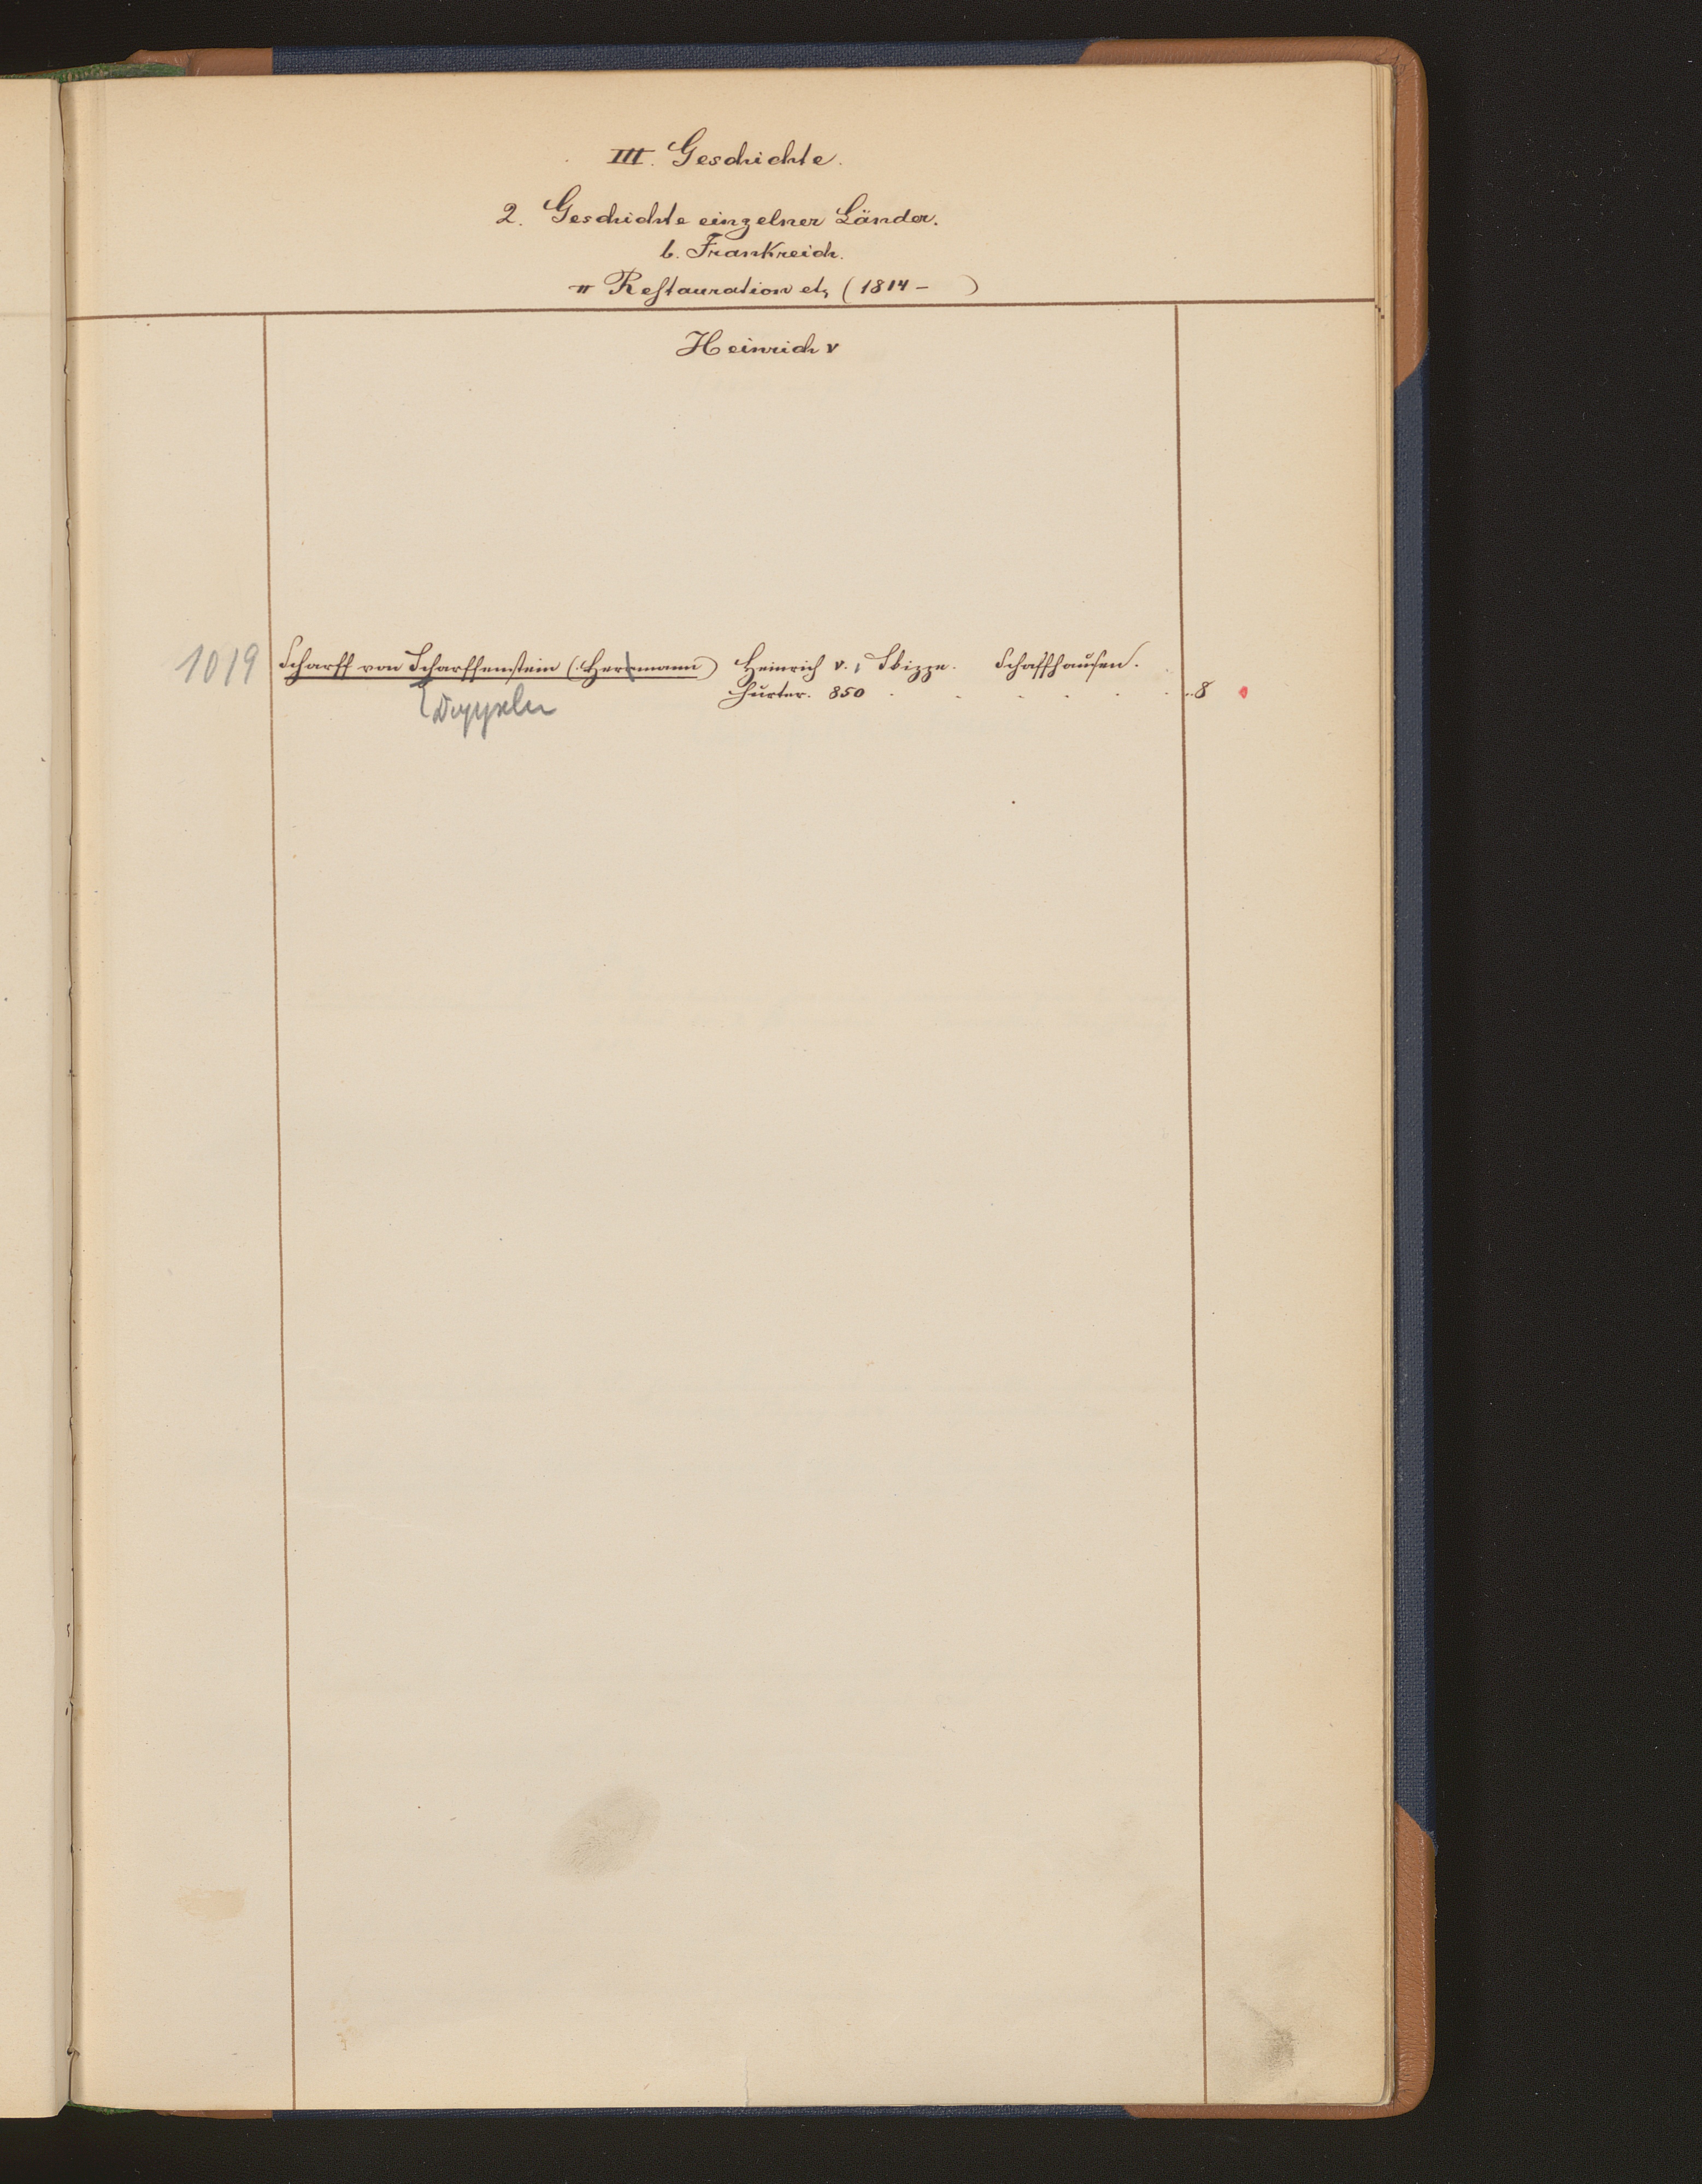 III. Geschichte.
2. Geschichte einzelner Länder.
b. Frankreich.
π Restauration etc (1814 – )
Heinrich V
1019 Scharff von Scharffenstein (Herrmann) Heinrich V., Skizze. Schaffhausen.
Hurter. 850 . . . . . . 8